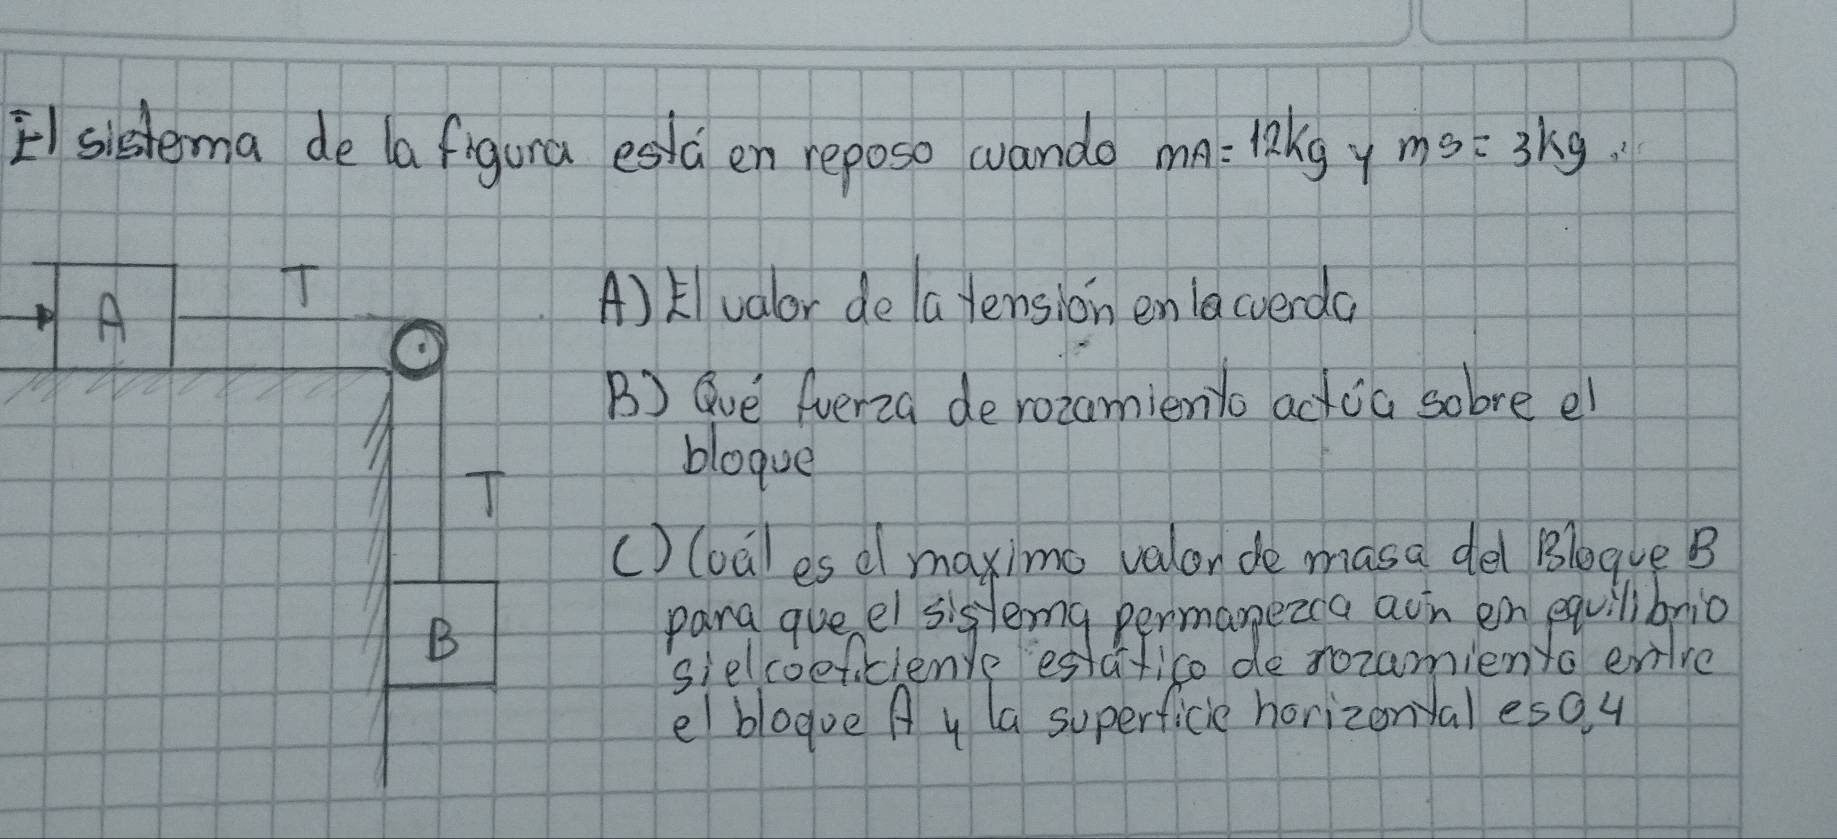 El sistema de la figura está en reposo cuando mA= 12kg y mB= 3kg.
A
T
T
B
A) El valor de la tensión en la cuerda
B) Qué fuerza de rozamiento actúa sobre el
bloque
C) Cuál es el maximo valor de masa del Bloque B
para que el sistema permanezca aún en equilibrio
si el coeficiente estático de rozamiento entre
el bloque A y la superficie horizontal es 0,4